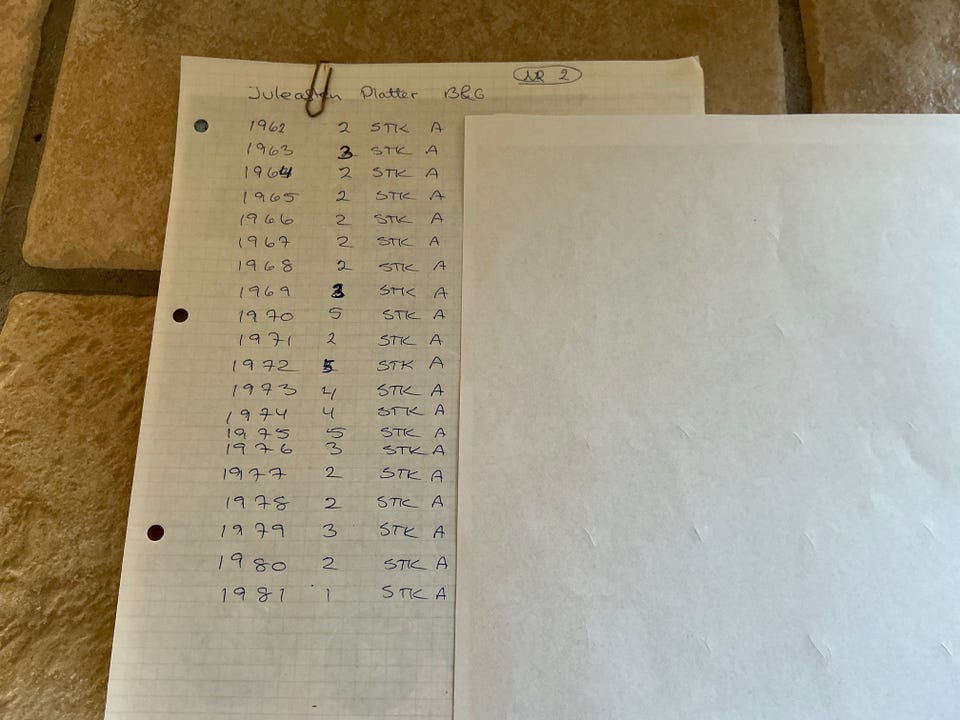 NR 2
Juleaften Platter B&G
1962 2 STK A
1963 3 STK A
1964 2 STK A
1965 2 STK A
1966 2 STK A
1967 2 STK A
1968 2 STK A
1969 3 STK A
1970 5 STK A
1971 2 STK A
1972 5 STK A
1973 4 STK A
1974 4 STK A
1975 5 STK A
1976 3 STK A
1977 2 STK A
1978 2 STK A
1979 3 STK A
1980 2 STK A
1981 1 STK A